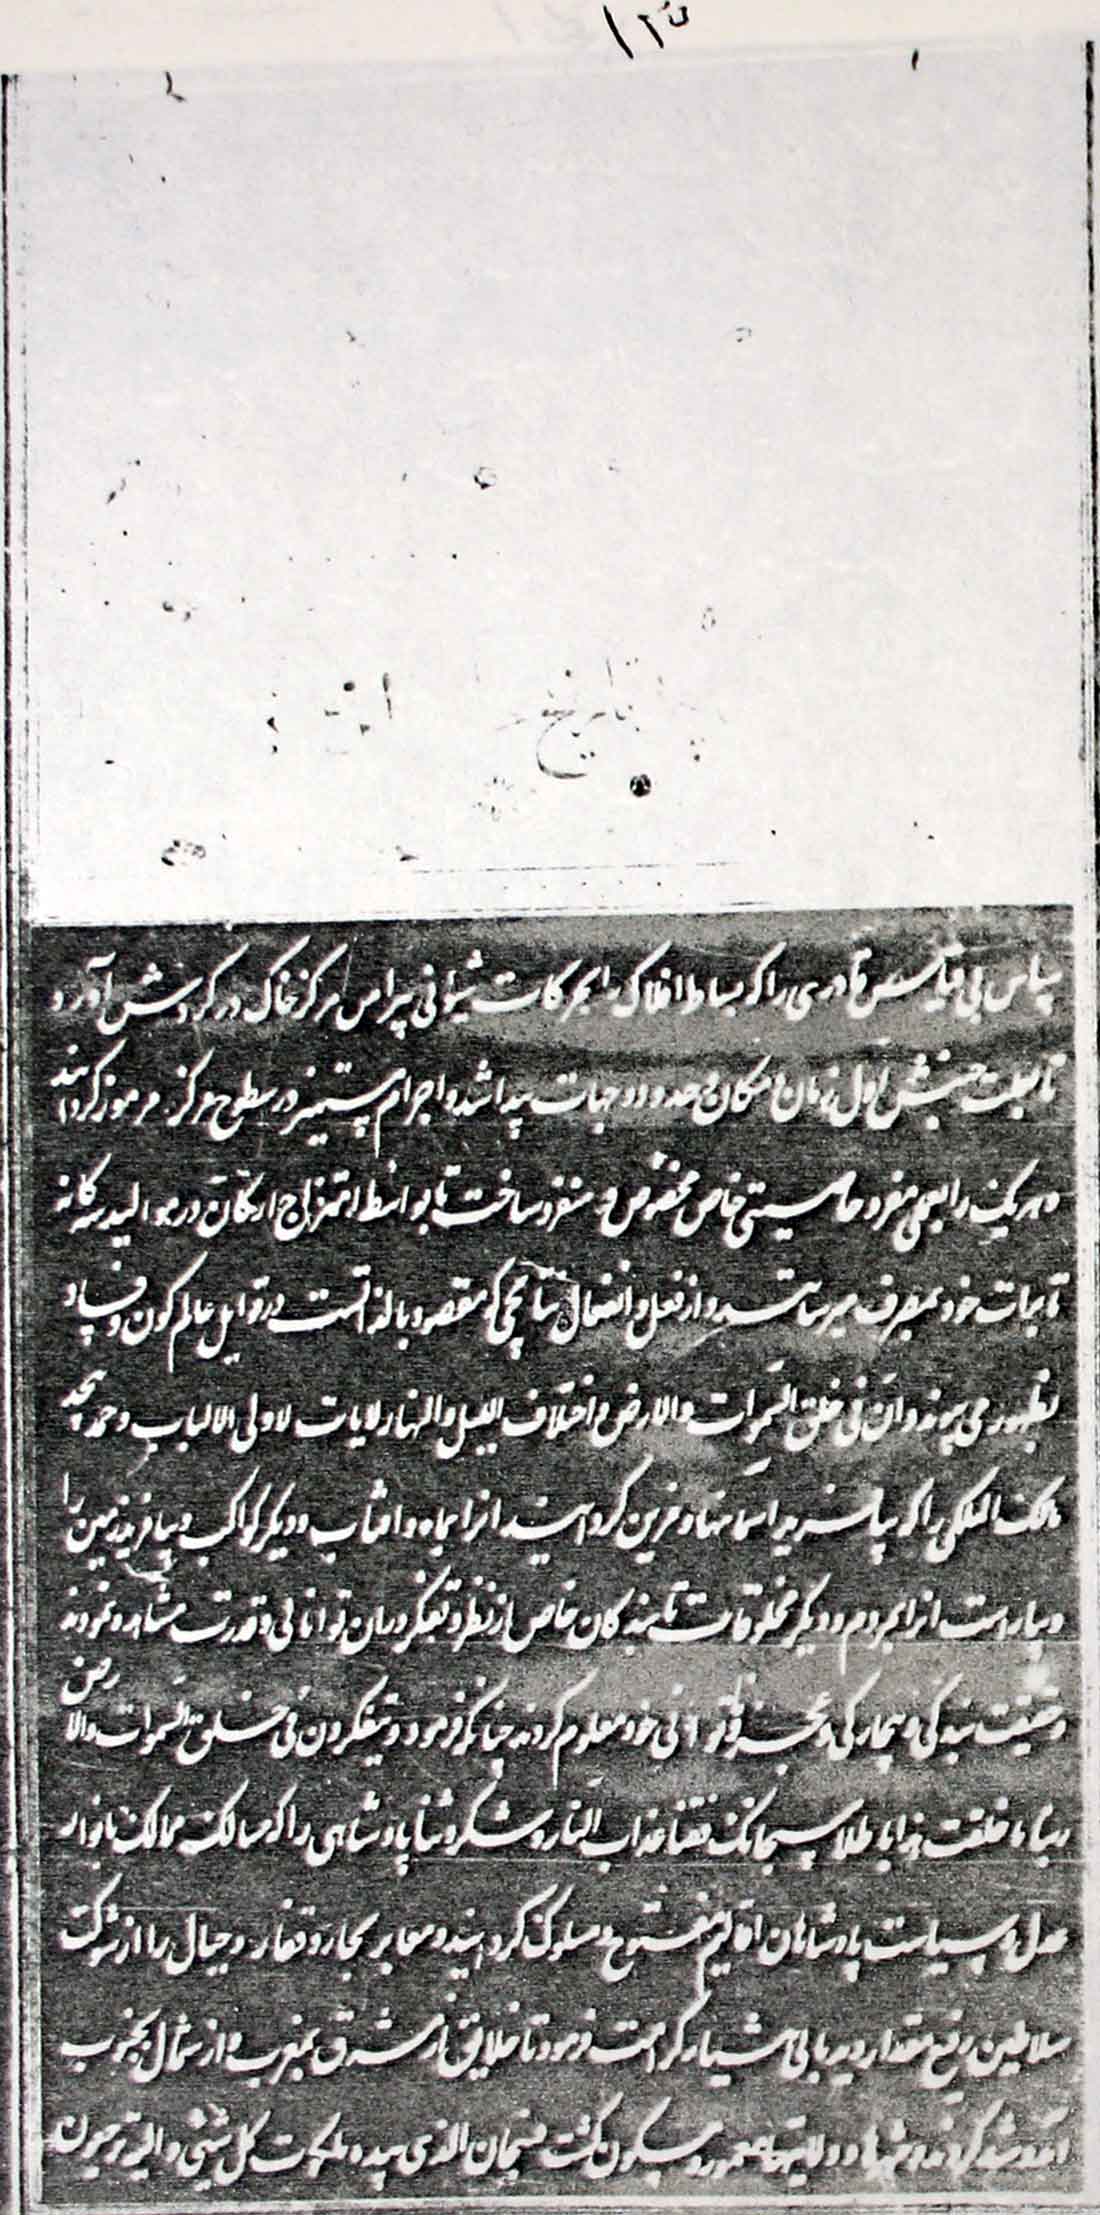 ۱۲۵
تاریخ
سپاس بی قیاس قادری را که بساط افلاک را بحرکات شوقی پیرامن مرکز خاک در گردش آورد
تا بعلت جنبش اول زمان و مکان و حدود و جهات پیدا شد و اجرام مستنیر در سطوح هر مرموز گردانید
و هر یک را بعملی مفرد و خاصیتی خاص مخصوص و منفرد ساخت تا بواسطه امتزاج ارکان در موالید سه گانه
تابجات خود بمصرف میرسانند و از فعل و انفعال نتایجی که مقصود بالذاتست در قوابل عالم کون و فساد
بظهور می پیوندد ان فی خلق السموات والارض و اختلاف اللیل والنهار لایات لاولی الالباب و حمد بیحد
مالک الملکی را که بیافرید آسمانها و مزین گردانید انرا بماه و افتاب و دیگر کواکب و بیافرید زمین را
و بیاراست انرا بمردم و دیگر مخلوقات تا بندگان خاص از نظر و تفکر در ان توانائی و قدرت مشاهده نمودند
و حقیقت بندگی و بیچارگی و عجز و ناتوانی خود معلوم کردند چنانکه فرمود و یتفکرون فی خلق السموات والارض
ربنا ما خلقت هذا باطلا سبحانک فقنا عذاب النار و شکر و ثنا پادشاهی را که مسالک ممالک بانوار
عدل و سیاست پادشاهان اقالیم مفتوح و مسلوک گردانید و معابر بحار و قفار و جبال را از شوکت
سلاطین رفیع مقدار بسیار کرامت فرمود تا خلایق از مشرق بمغرب و از شمال بجنوب
آمد و شد کردند و شهرها و ولایتها معمور و مسکون گشت فسبحان الذی بیده ملکوت کل شیئ و الیه ترجعون